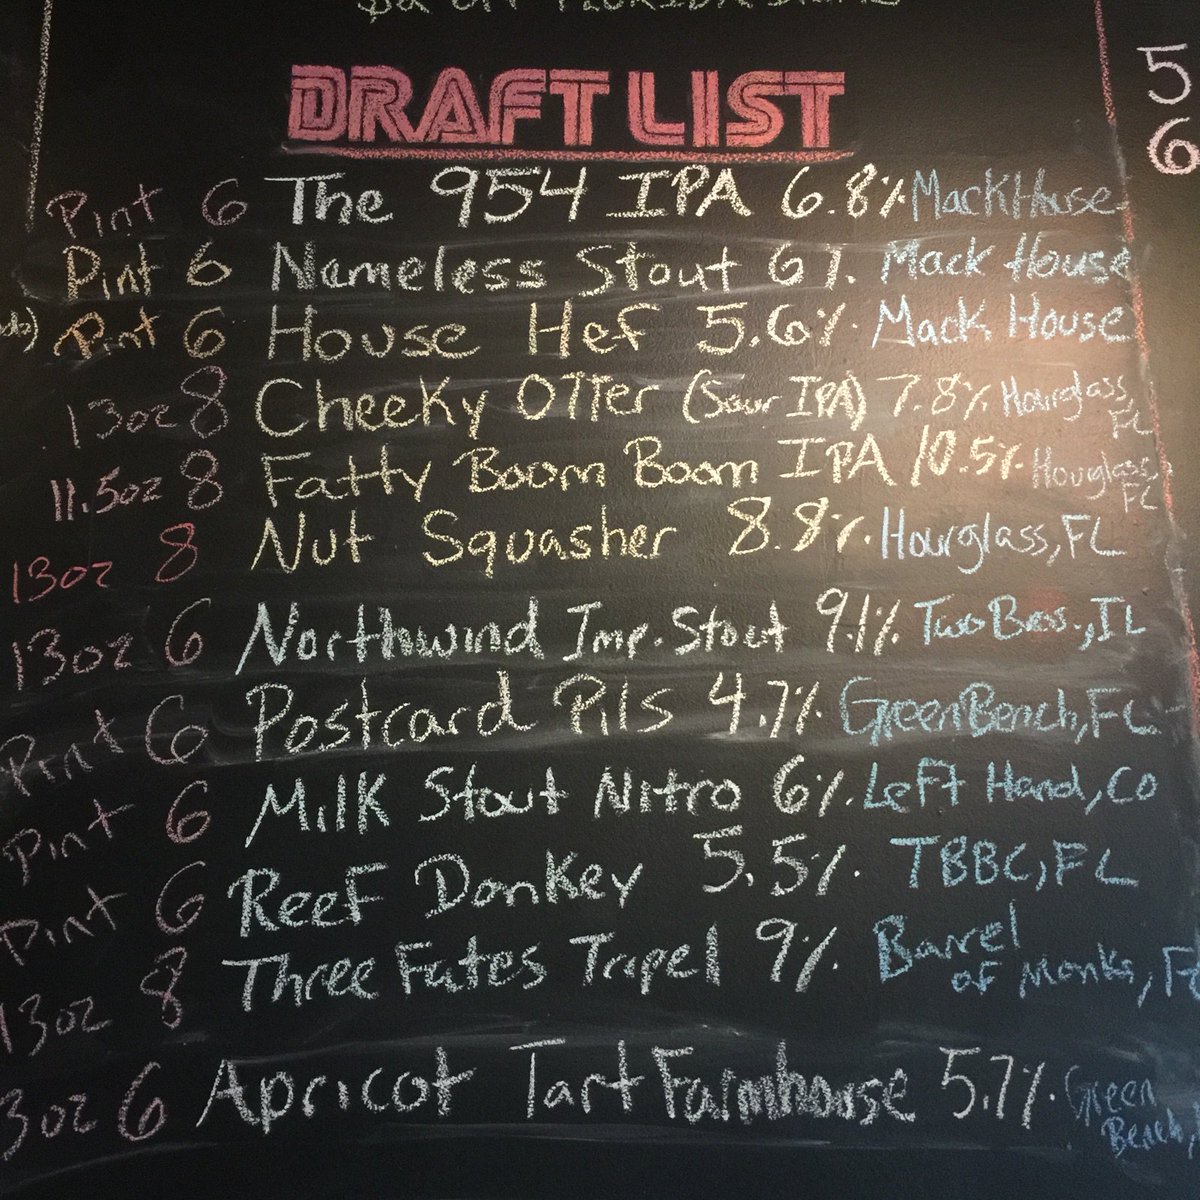 DRAFT LIST
5
6
Pint 6 The 954 IPA 6.8% MackHouse
Pint 6 Nameless Stout 6% Mack House
Pint 6 House Hef 5.6% Mack House
13oz 8 Cheeky Otter (Sour IPA) 7.8% Hourglass, FL
11.5oz 8 Fatty Boom Boom IPA 10.5% Hourglass, FL
13oz 8 Nut Squasher 8.8% Hourglass, FL
13oz 6 Northwind Imp. Stout 9.1% Two Bros., IL
Pint 6 Postcard Pils 4.7% Green Bench, FL
Pint 6 Milk Stout Nitro 6% Left Hand, CO
Pint 6 Reef Donkey 5.5% TBBC, FL
13oz 8 Three Fates Tripel 9% Barrel of Monks, FL
3oz 6 Apricot Tart Farmhouse 5.7% Green Bench,